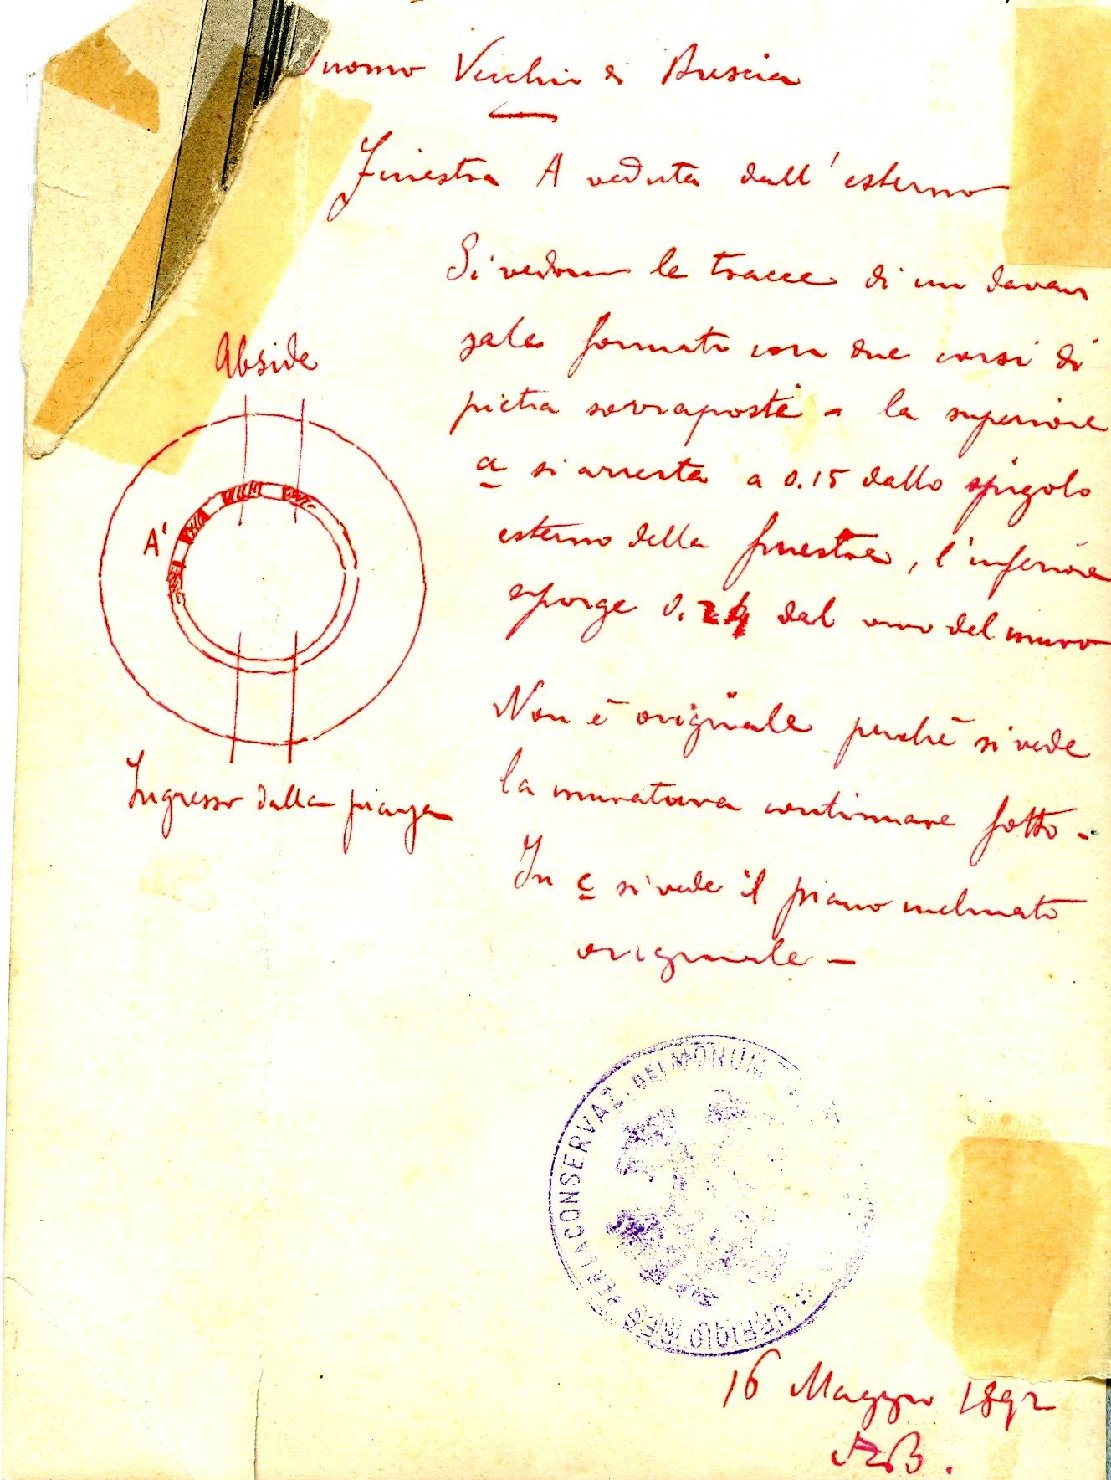 Duomo Vecchio di Brescia
Finestra A veduta dall'esterno
Si vedono le tracce di un davan
zale formato con due corsi di
pietra sovrapposte - la superiore
a si arresta a 0.15 dallo spigolo
esterno della finestra, l'inferiore
sporge 0.24 dal vivo del muro
Non è originale perchè si vede
la muratura continuare sotto -
In c si vede il piano inclinato
originale -
Abside
A'
Ingresso dalla piazza
UFFICIO REG PER LA CONSERVAZ. DEI MONUM
16 Maggio 1892